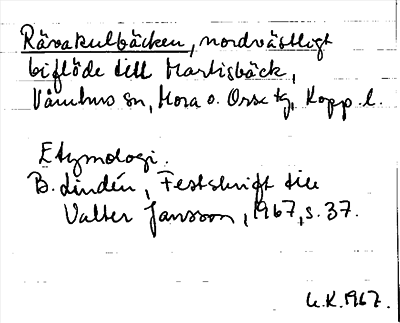 Rävakulbäcken, nordvästligt
biflöde till Martisbäck,
Våmhus sn, Mora o. Orsa tg, Kopp. l.
Etymologi.
B. Lindén, Festskrift till
Valter Jansson, 1967, s. 37.
U.K. 1967.